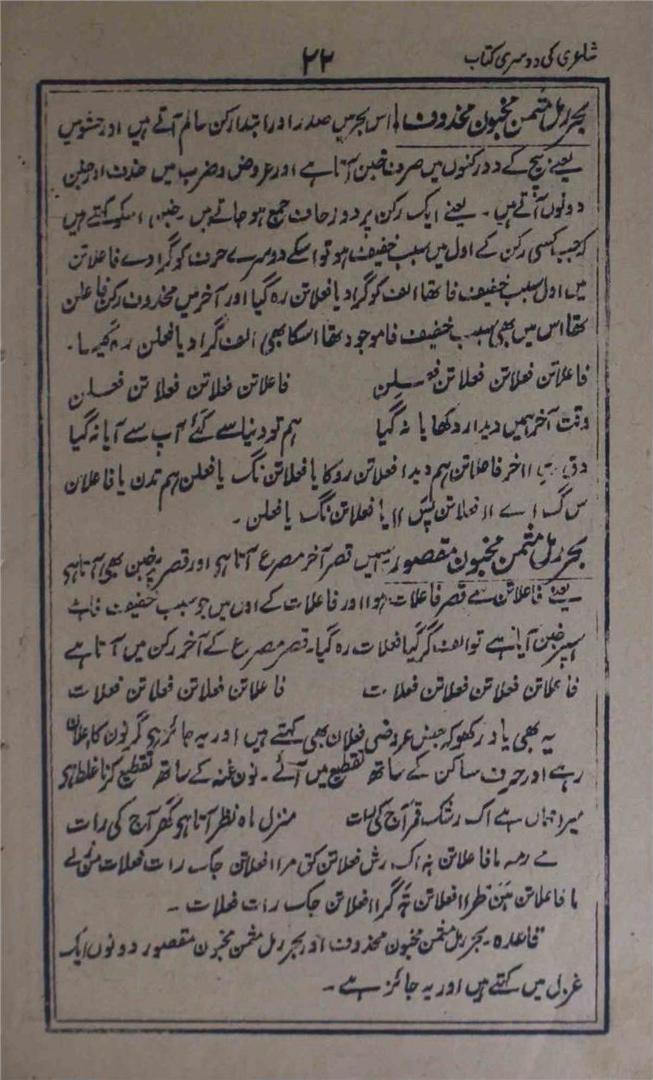 شاعری کی دوسری کتاب
۲۲
بحر رمل مثمن مخبون محذوف اس بحر میں صدر اور ابتدا رکن سالم آتے ہیں اور حشو میں
یعنے بیچ کے دو رکنوں میں صرف خبن آتا ہے اور عروض و ضرب میں حذف اور خبن
دونوں آتے ہیں۔ یعنے ایک رکن پر دو زحاف جمع ہو جاتے ہیں خبن اسکو کہتے ہیں
کہ جب کسی رکن کے اول میں سبب خفیف ہو تو اسکے دوسرے حرف کو گرا دے فاعلاتن
میں اول سبب خفیف فا تھا الف کو گرا دیا فعلاتن رہ گیا اور آخر میں محذوف رکن فاعلن
تھا اس میں بھی سبب خفیف فا موجود تھا اسکا بھی الف گرا دیا فعلن رہ گیا۔
فاعلاتن فعلاتن فعلاتن فعلن فاعلاتن فعلاتن فعلاتن فعلن
وقت آخر ہمیں دیدار دکھایا نہ گیا ہم تو دنیا سے گئے آپ سے آیا نہ گیا
اخر فاعلاتن ہم دیدا فعلاتن روکا یا فعلاتن نگ یا فعلن ہم تدن یا فاعلان
س گ اے اا فعلاتن پس اا یا فعلاتن نگ یا فعلن۔
بحر رمل مثمن مخبون مقصور اسمیں قصر آخر مصرع آتا ہو اور قصر پر خبن بھی آتا ہو
یعنے فاعلاتن سے قصر فاعلات ہوا اور فاعلات کے اول میں جو سبب خفیف فا ہے
اسپر خبن آیا ہے تو الف گر گیا فعلات رہ گیا۔ قصر مصرع کے آخر رکن میں آتا ہے
فاعلاتن فعلاتن فعلاتن فعلات فاعلاتن فعلاتن فعلاتن فعلات
یہ بھی یاد رکھو کہ بعض عروضی فعلان بھی کہتے ہیں اور یہ جائز ہو گر نون کا اعلان
رہے اور حرف ساکن کے ساتھ تقطیع میں آئے۔ نون غنہ کے ساتھ تقطیع کرنا غلط ہو
میرا مہماں ہے اک رشک قمر آج کی رات منزل ماہ نظر آتا ہو گھر آج کی رات
مے رمہ ما فاعلاتن ہ اک رش فعلاتن کق مرا افعلاتن جک رات فعلات من زلے
ما فاعلاتن ہن ظرا افعلاتن ہ گرا افعلاتن جک رات فعلات۔
قاعدہ۔ بحر رمل مثمن مخبون محذوف اور بحر رمل مثمن مخبون مقصور دونوں ایک
غزل میں کہتے ہیں اور یہ جائز ہے۔